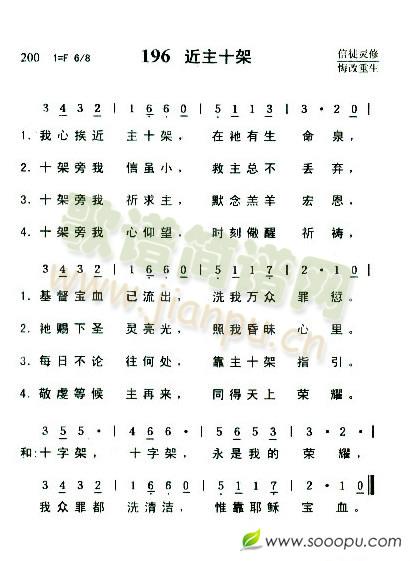 200 1=F 6/8 196 近主十架 信徒灵修
悔改重生
3 4 3 2 | 1 6 6 0 | 5 1 1 3 | 3 · 2 0 |
1. 我心挨近 主十架， 在祂有生 命泉，
2. 十架旁我 信虽小， 救主总不 丢弃，
3. 十架旁我 祈求主， 默念羔羊 宏恩，
4. 十架旁我 心仰望， 时刻儆醒 祈祷，
3 4 3 2 | 1 6 6 0 | 5 1 1 7 | 2 · 1 0 |
1. 基督宝血 已流出， 洗我万众 罪愆。
2. 祂赐下圣 灵亮光， 照我昏昧 心里。
3. 每日不论 往何处， 靠主十架 指引。
4. 敬虔等候 主再来， 同得天上 荣耀。
3 5 5 · | 5 6 6 · | 5 1 5 3 | 3 · 2 · |
和: 十字架， 十字架， 永是我的 荣耀，
3 4 3 2 | 1 6 6 0 | 5 1 1 7 | 2 · 1 0
我众罪都 洗清洁， 惟靠耶稣 宝血。
歌谱简谱网
www.jianpu.cn
www.sooopu.com